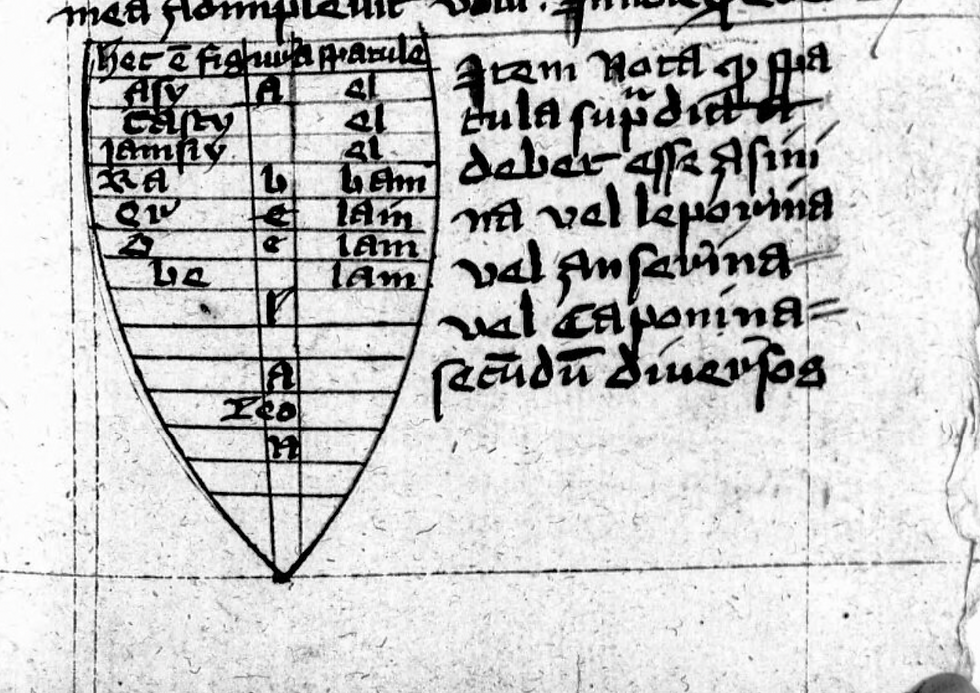 mea
hec ē figura spatule
Asy A el
Casty el
Iamsiy el
Ra L Lam
Eu e lam
O e lam
Le lam
r
A
Leo
N
Item Nota ꝙ spa
tula sup̄dicta
debet esse Asini
na vel leporina
vel Anserina
vel Caponina
secūdū diuersos